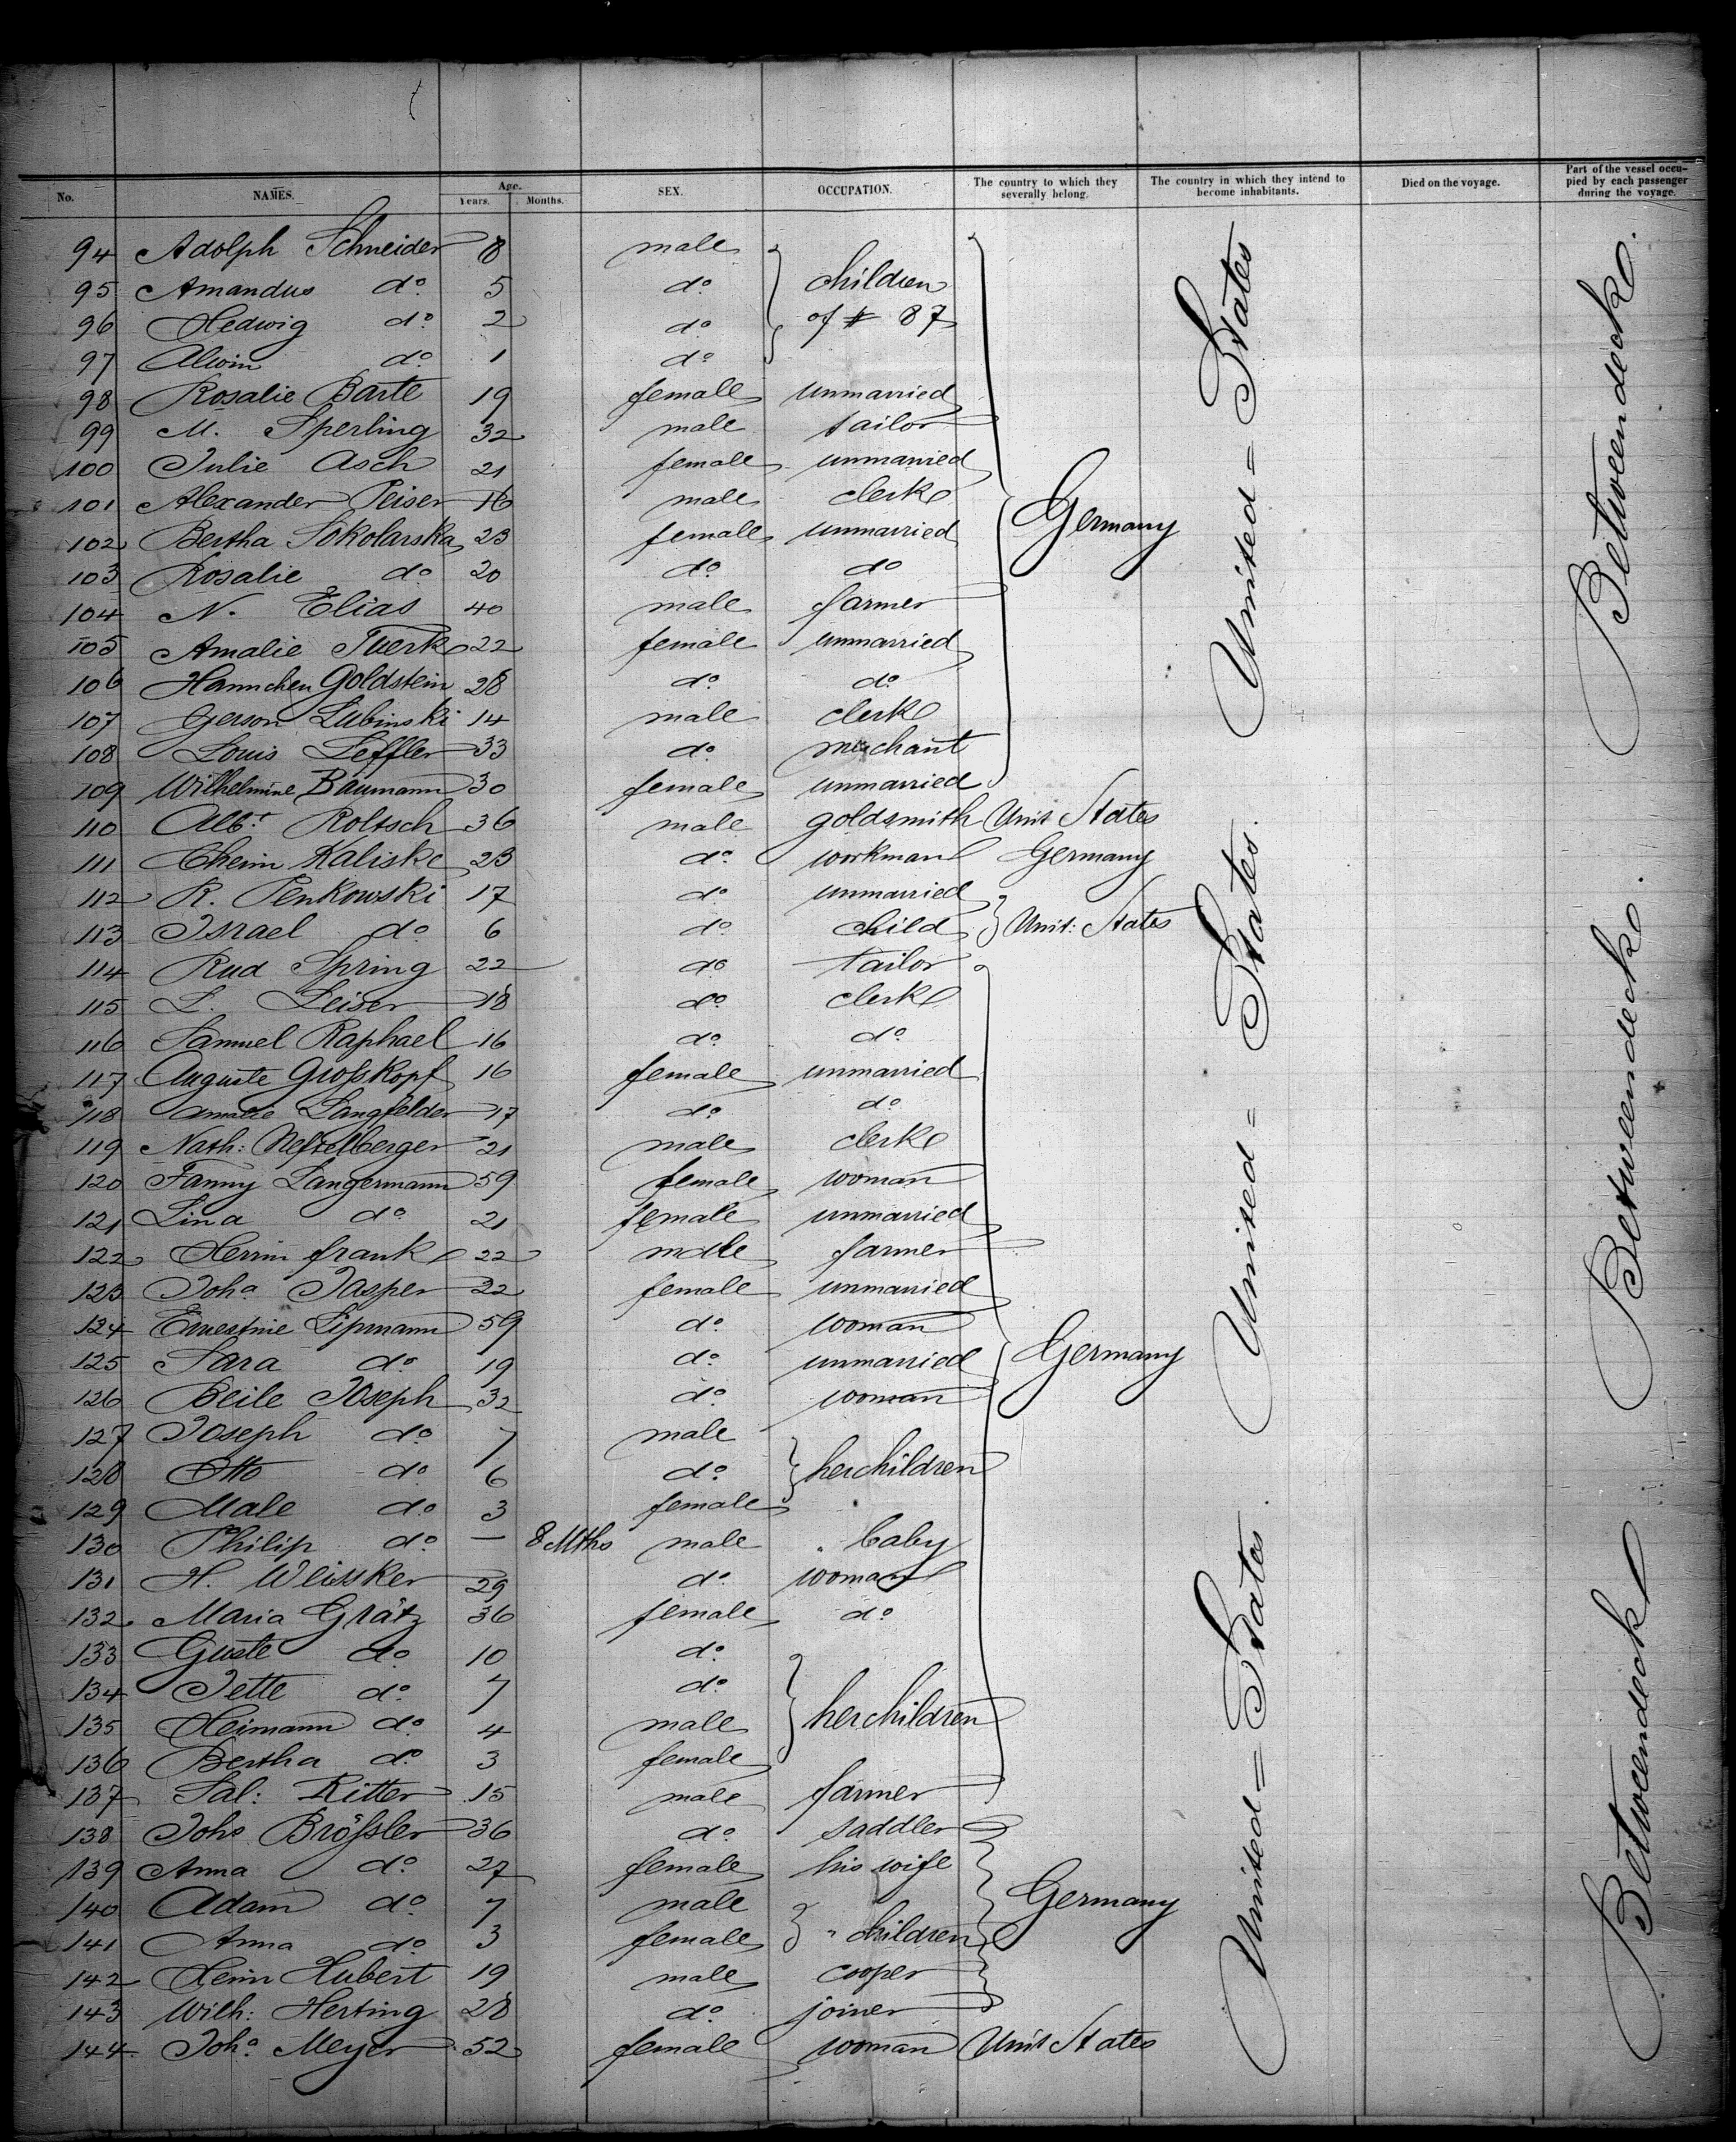 No. NAMES. Age. Years. Months. SEX. OCCUPATION. The country to which they severally belong. The country in which they intend to become inhabitants. Died on the voyage. Part of the vessel occupied by each passenger during the voyage.
94 Adolph Schneider 8 male
95 Amandus do 5 do children
96 Hedwig do 2 do of # 87
97 Alwin do 1 do
98 Rosalie Barte 19 female unmarried
99 M. Sperling 32 male tailor
100 Julie Asch 21 female unmarried
101 Alexander Peiser 16 male clerk
102 Bertha Sokolarska 23 female unmarried Germany
103 Rosalie do 20 do do
104 N. Elias 40 male farmer
105 Amalie Tuerk 22 female unmarried
106 Hannchen Goldstein 28 do do
107 Gerson Lubinski 14 male clerk
108 Louis Leffler 33 do merchant
109 Wilhelmine Baumann 30 female unmarried
110 Albt Roltsch 36 male goldsmith Unit States
111 Cheim Kaliske 23 do workman Germany
112 R. Penkowski 17 do unmarried
113 Israel do 6 do child Unit: States
114 Rud Spring 22 do tailor
115 L. Leiser 18 do clerk
116 Samuel Raphael 16 do do
117 Auguste Großkopf 16 female unmarried
118 Amalie Langfelder 17 do do
119 Nath: 21 male clerk
120 Fanny Langermann 59 female woman
121 Lina do 21 female unmarried
122 Herrm Frank 22 male farmer
123 Joha Jasper 22 female unmarried
124 Ernestine Lipmann 59 do woman
125 Sara do 19 do unmarried Germany
126 Beile Joseph 32 do woman
127 Joseph do 7 male
128 Otto do 6 do her children
129 Male do 3 female
130 Philip do — 8 Mths male baby
131 H. Weissker 29 do woman
132 Maria Grätz 36 female do
133 Guste do 10 do
134 Jette do 7 do
135 Heimann do 4 male her children
136 Bertha do 3 female
137 Sal: Ritter 15 male farmer
138 Johs Brößler 36 do saddler
139 Anna do 27 female his wife
140 Adam do 7 male Germany
141 Anna do 3 female " children
142 Herm Hubert 19 male cooper
143 Wilh: Herting 28 do joiner
144 Joha Meyer 52 female woman Unit States
United = States
United = States.
United = States.
Betweendeck.
Betweendeck.
Betweendeck